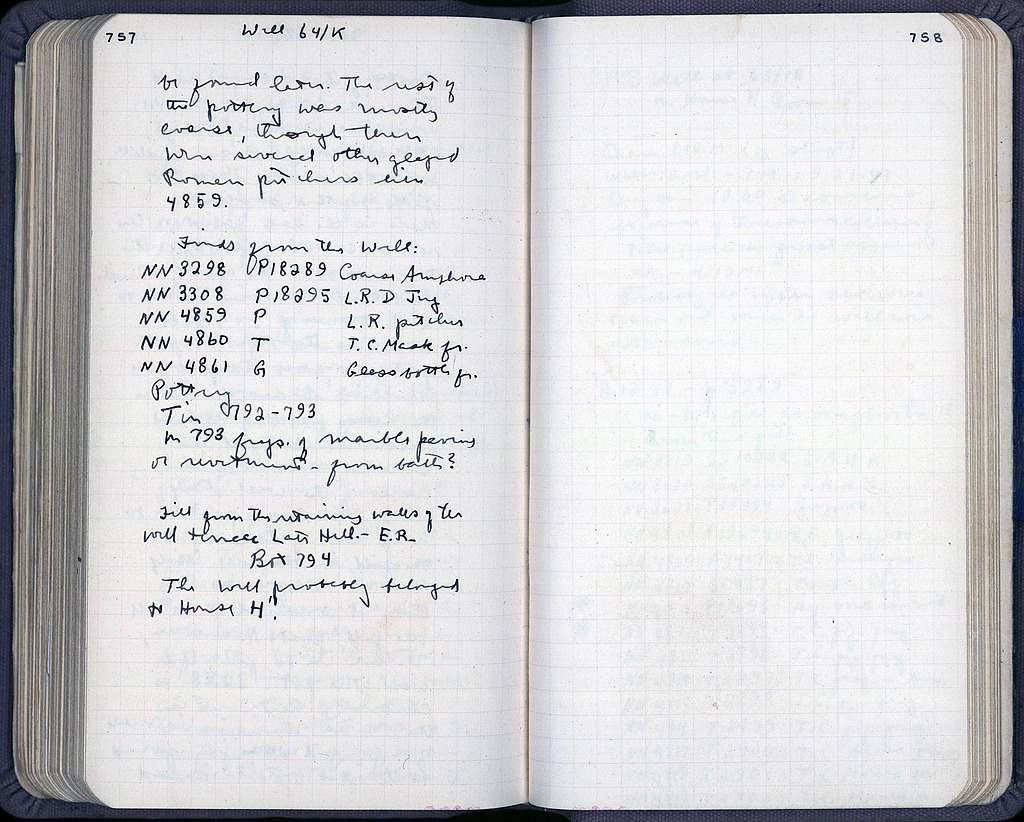 757
Well 64/K
be found later. The rest of
the pottery was mostly
coarse, though there
were several other glazed
Roman pitchers like
4859.
Finds from the Well:
NN 3298 P18289 Coarse Amphora
NN 3308 P18295 L.R.D Jug
NN 4859 P L.R. pitcher
NN 4860 T T.C. Mask fr.
NN 4861 G Glass bottle fr.
Pottery
Tin 792-793
In 793 frags. of marble paving
or revetment - from bath?
Fill from the retaining walls of the
well terrace Late Hell. - E.R.
Box 794
The well probably belonged
to House H!
758